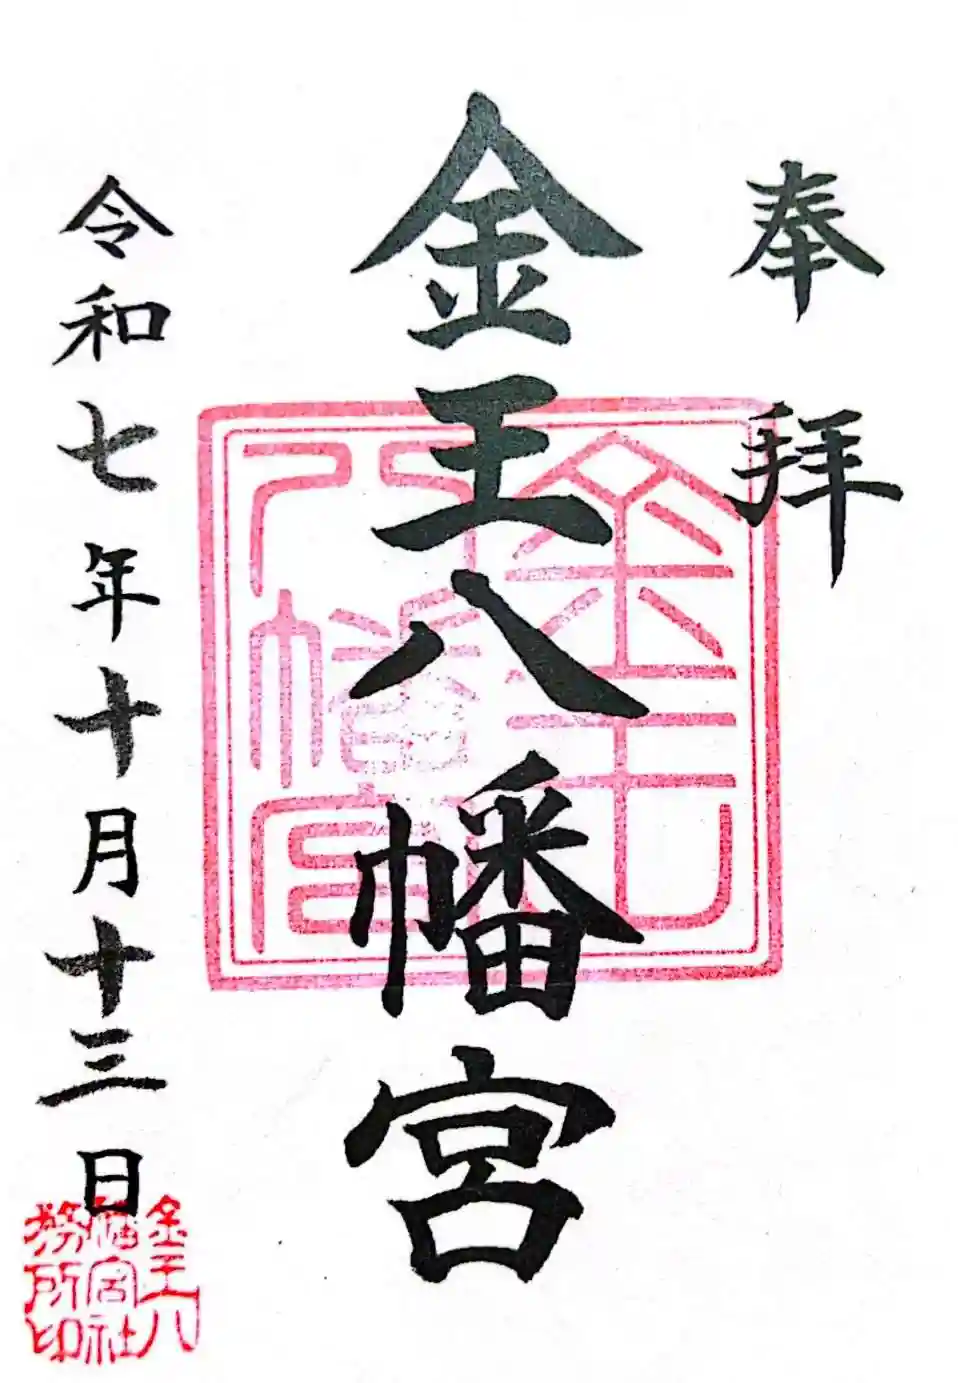 奉拝
金王八幡宮
令和七年十月十三日
金王
八幡宮
金王八
幡宮社
務所印